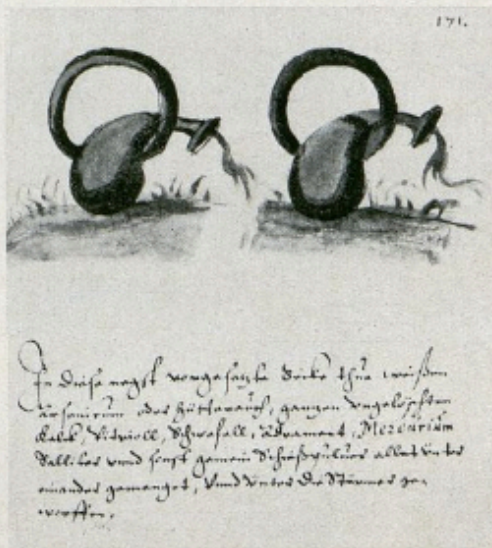 171.
In diese negst vorgesatzte Stücke thue weißen
arsenicum oder Hüttenrauch, ganzen ungelöschten
Kalck, Vitrioll, Schwefall, Atrament, Mercurium
Salliter unnd sonst gemein Schießpulver alles unter
einander gemenget, Unnd unter die Stürmer ge-
worffen.